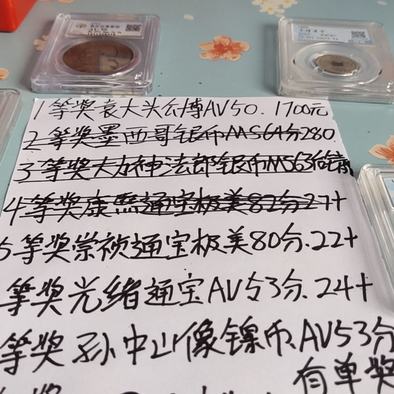 1等奖袁大头公博AV50.1700元
2等奖墨西哥银币MS64分280
3等奖大力神法郎银币MS63
4等奖康熙通宝极美82分27+
5等奖崇祯通宝极美80分.22+
等奖光绪通宝AV53分.24+
等奖孙中山像镍币.AV53分
有单奖